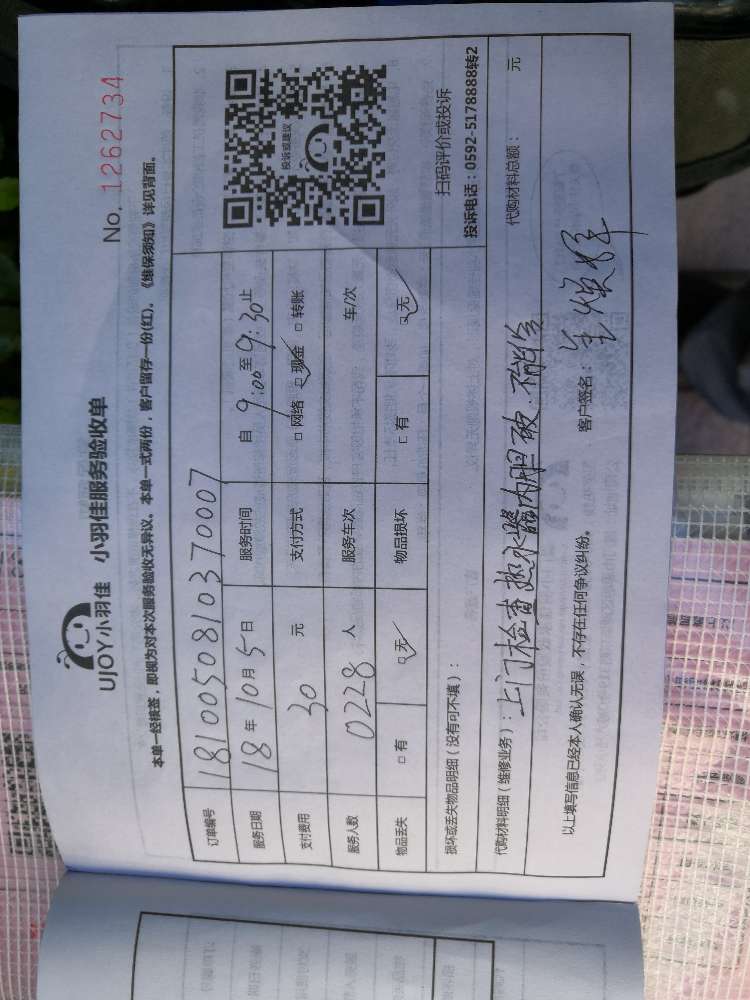 UJOY小羽佳 小羽佳服务验收单
No. 1262734
本单一经核签，即视为对本次服务验收无异议。本单一式两份，客户留存一份(红)。《维保须知》详见背面。
订单编号 181005081037 0007
服务日期 18年10月5日 服务时间 自9:00至9:30止
支付费用 30元 支付方式 □网络 □现金 □转账
服务人数 0228人 服务车次 车/次
物品丢失 □有 □无 物品损坏 □有 □无
投诉或建议
扫码评价或投诉
投诉电话：0592-5178888转2
损坏或丢失物品明细（没有可不填）：
代购材料明细（维修业务）：上门检查热水器内胆破.不能修 代购材料总额： 元
以上填写信息已经本人确认无误，不存在任何争议纠纷。 客户签名：